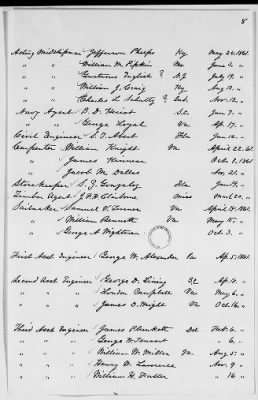 8
Acting Midshipman Jefferson Phelps Ky May 24, 1861.
" " William M. Pipkin Mo June 3, "
" " Gustavus English ? N.J July 19, "
" " William J. Craig Ky Aug 10, "
" " Charles L. ? Ind. Nov. 12, "
Navy Agent B. D. Heriot S.C. Jany 7, "
" " George Loyal Va Ap. 17, "
Civil Engineer S. T. Abert Fla Jan 12, "
Carpenter William Knight Va April 22, 61.
" James Va Oct 3, 1861
" Jacob M. Dallas Nov. 21, "
Storekeeper S. Z. Gonzalez Fla Jan 19, "
Timber Agent J.F.H. Claiborne Miss
Sailmaker Samuel V. Turner Va April 18, 1861.
" William Bennett Va May 15, "
" George A. Wightman Oct 3, 61.
First Asst Engineer George W. Alexander Ap. 5, 1861.
Second Asst Engineer George D. Lining S.C. Ap. 10, "
" " Loudon Campbell Va May 6, "
" " James D. Wright Va Oct 16, "
Third Asst Engineer James Plunkett Del Feb 6, "
" " George W. Tennent " 6, "
" " William W. Miller Va Aug 5, "
" " Henry W. Lawrence Nov. 9 "
" " William H. Fuller " 16 "